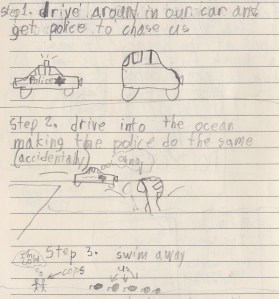 Step 1. drive around in our car and
get police to chase us
Police
Step 2. drive into the ocean
making the police do the same
(accidentally)
Step 3. swim away
cops
us